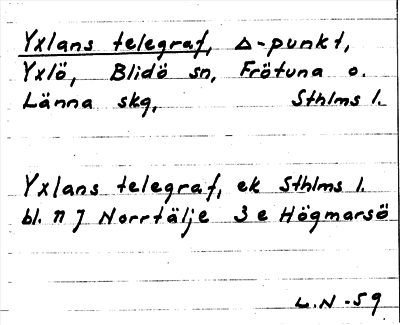 Yxlans telegraf, Δ-punkt,
Yxlö, Blidö sn, Frötuna o.
Länna skg, Sthlms l.
Yxlans telegraf, ek Sthlms l.
bl. 77 J Norrtälje 3 e Högmarsö
L.N -59